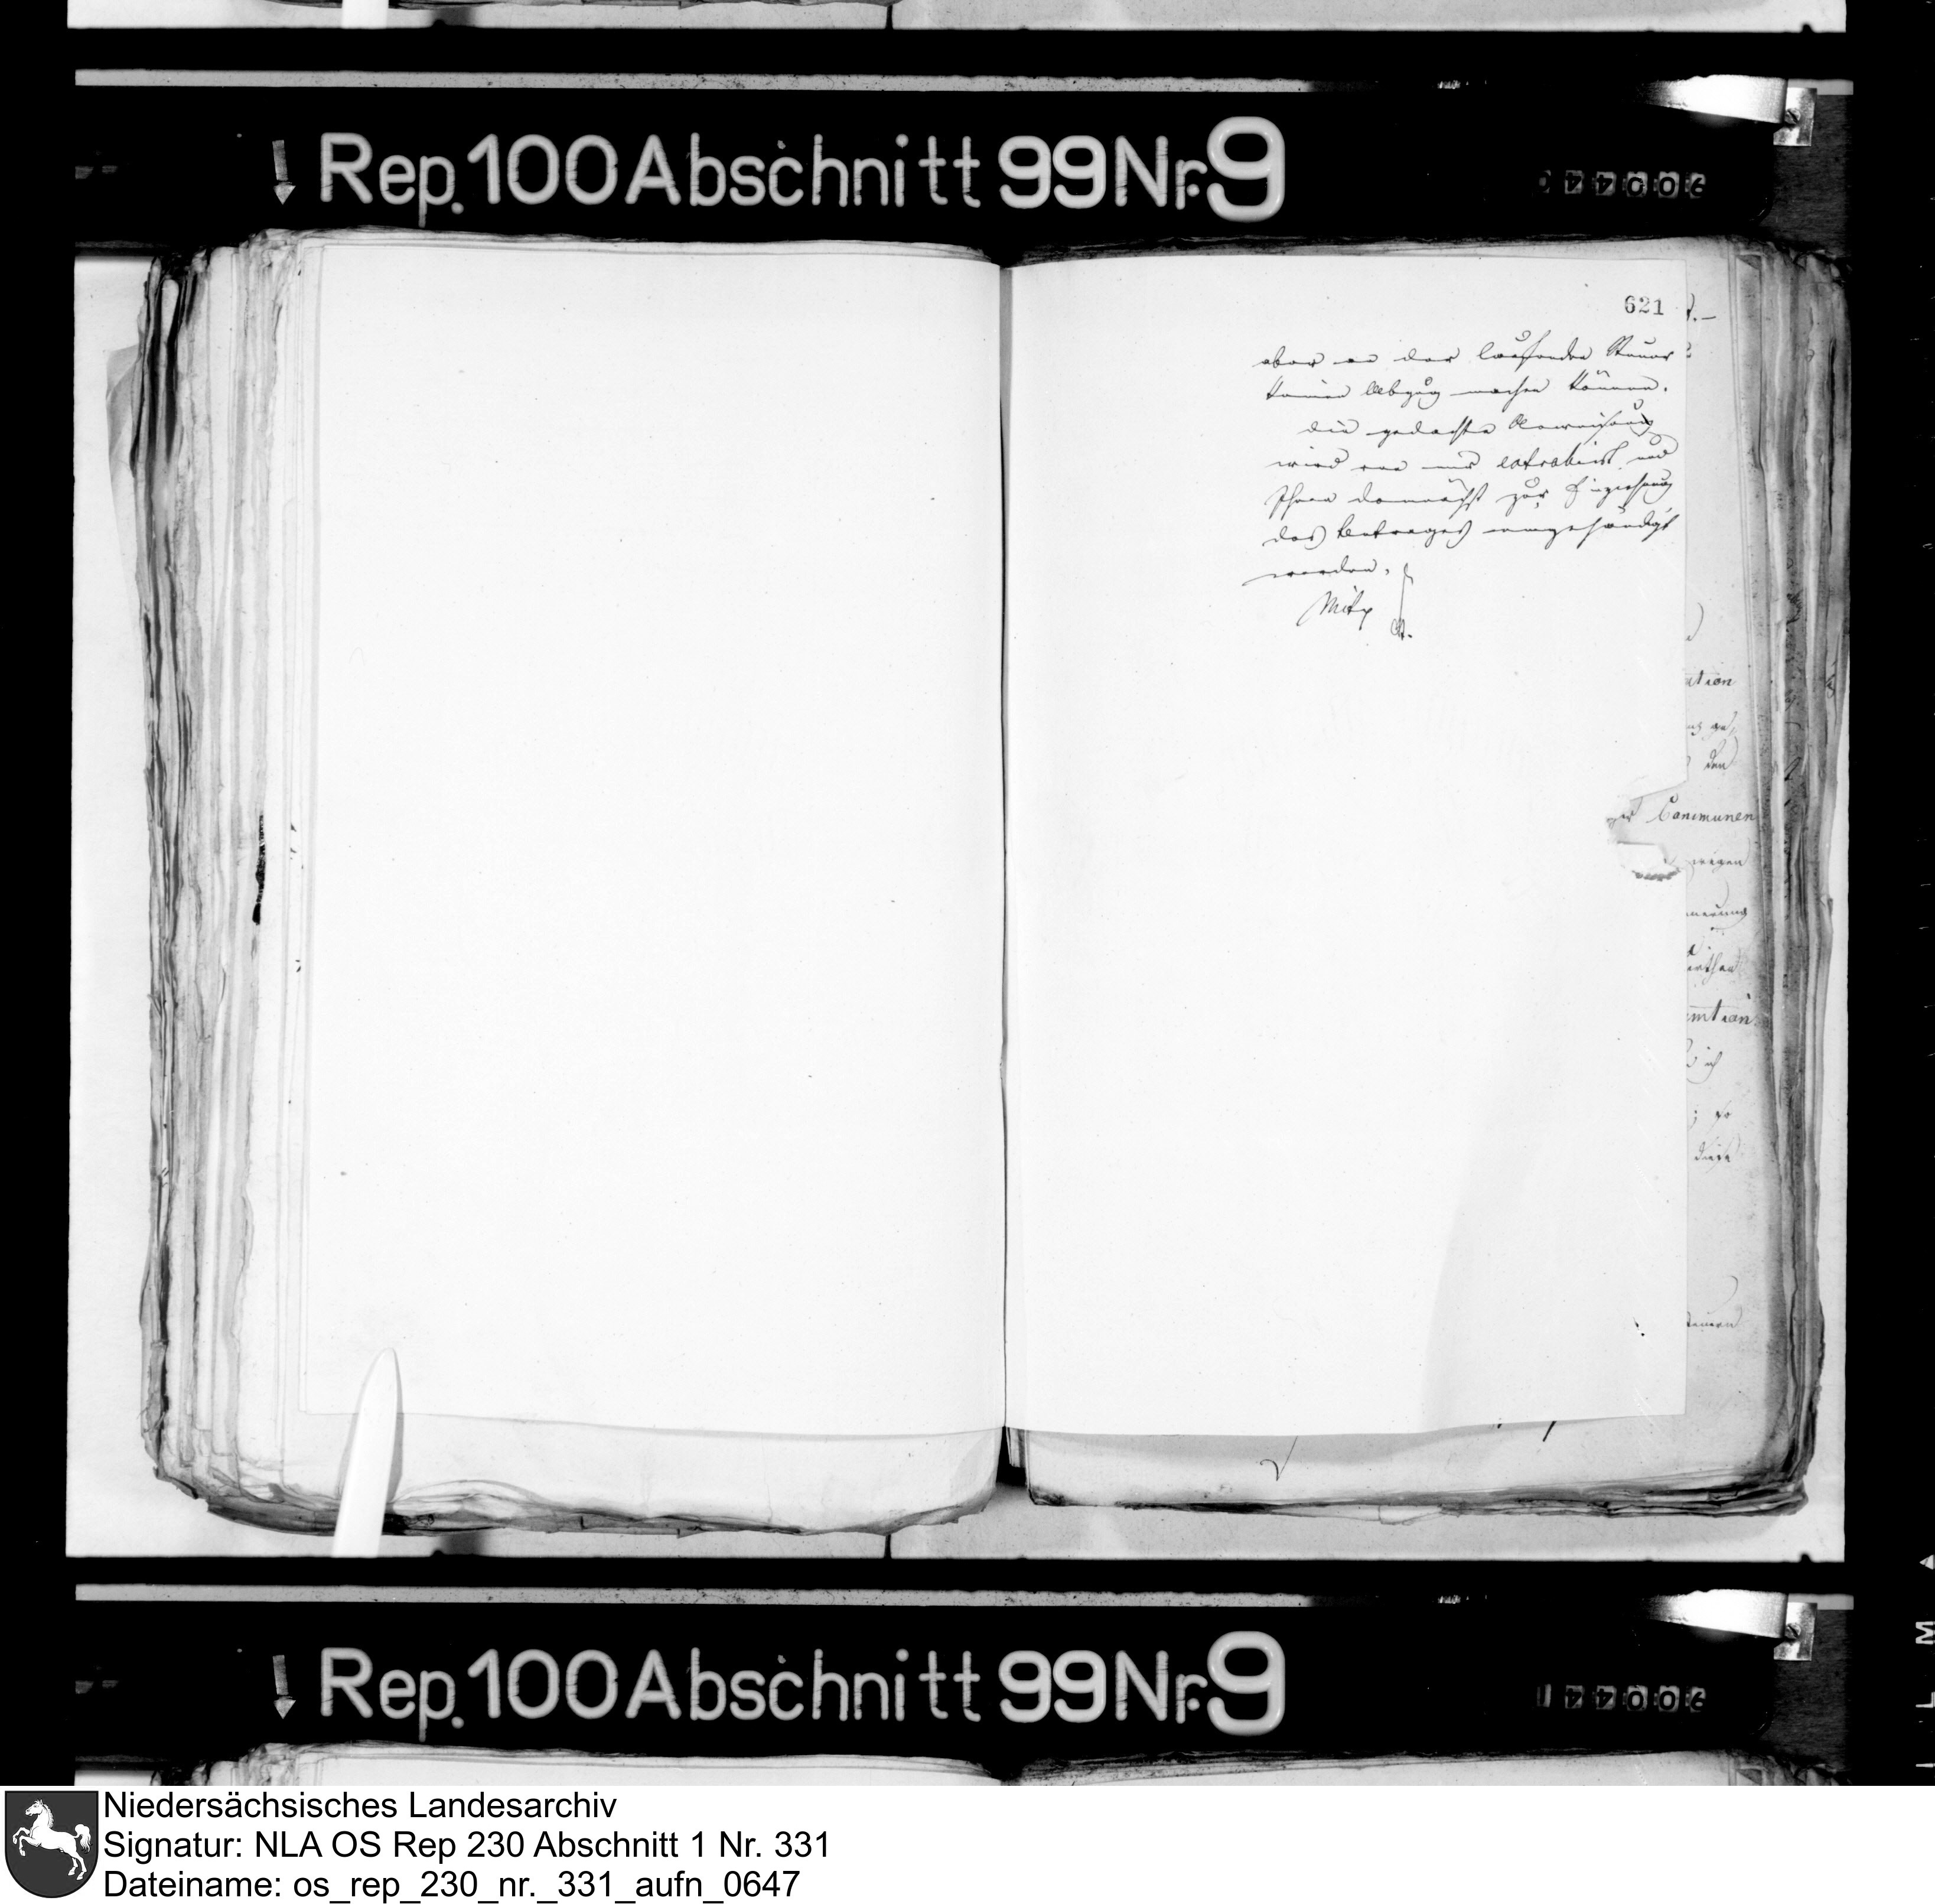 Rep. 100 Abschnitt 99 Nr. 9
900440
621
aber an der laufenden Steuer
keinen Abzug machen können.
die gedachte Anweisung
wird von mir extrahirt und
Ihnen demnächst zur Einziehung
des Betrages eingehändigt
werden.
ation
den
Communen
wegen
ich
so
diese
Rep. 100 Abschnitt 99 Nr. 9
900441
Niedersächsisches Landesarchiv
Signatur: NLA OS Rep 230 Abschnitt 1 Nr. 331
Dateiname: os_rep_230_nr._331_aufn_0647